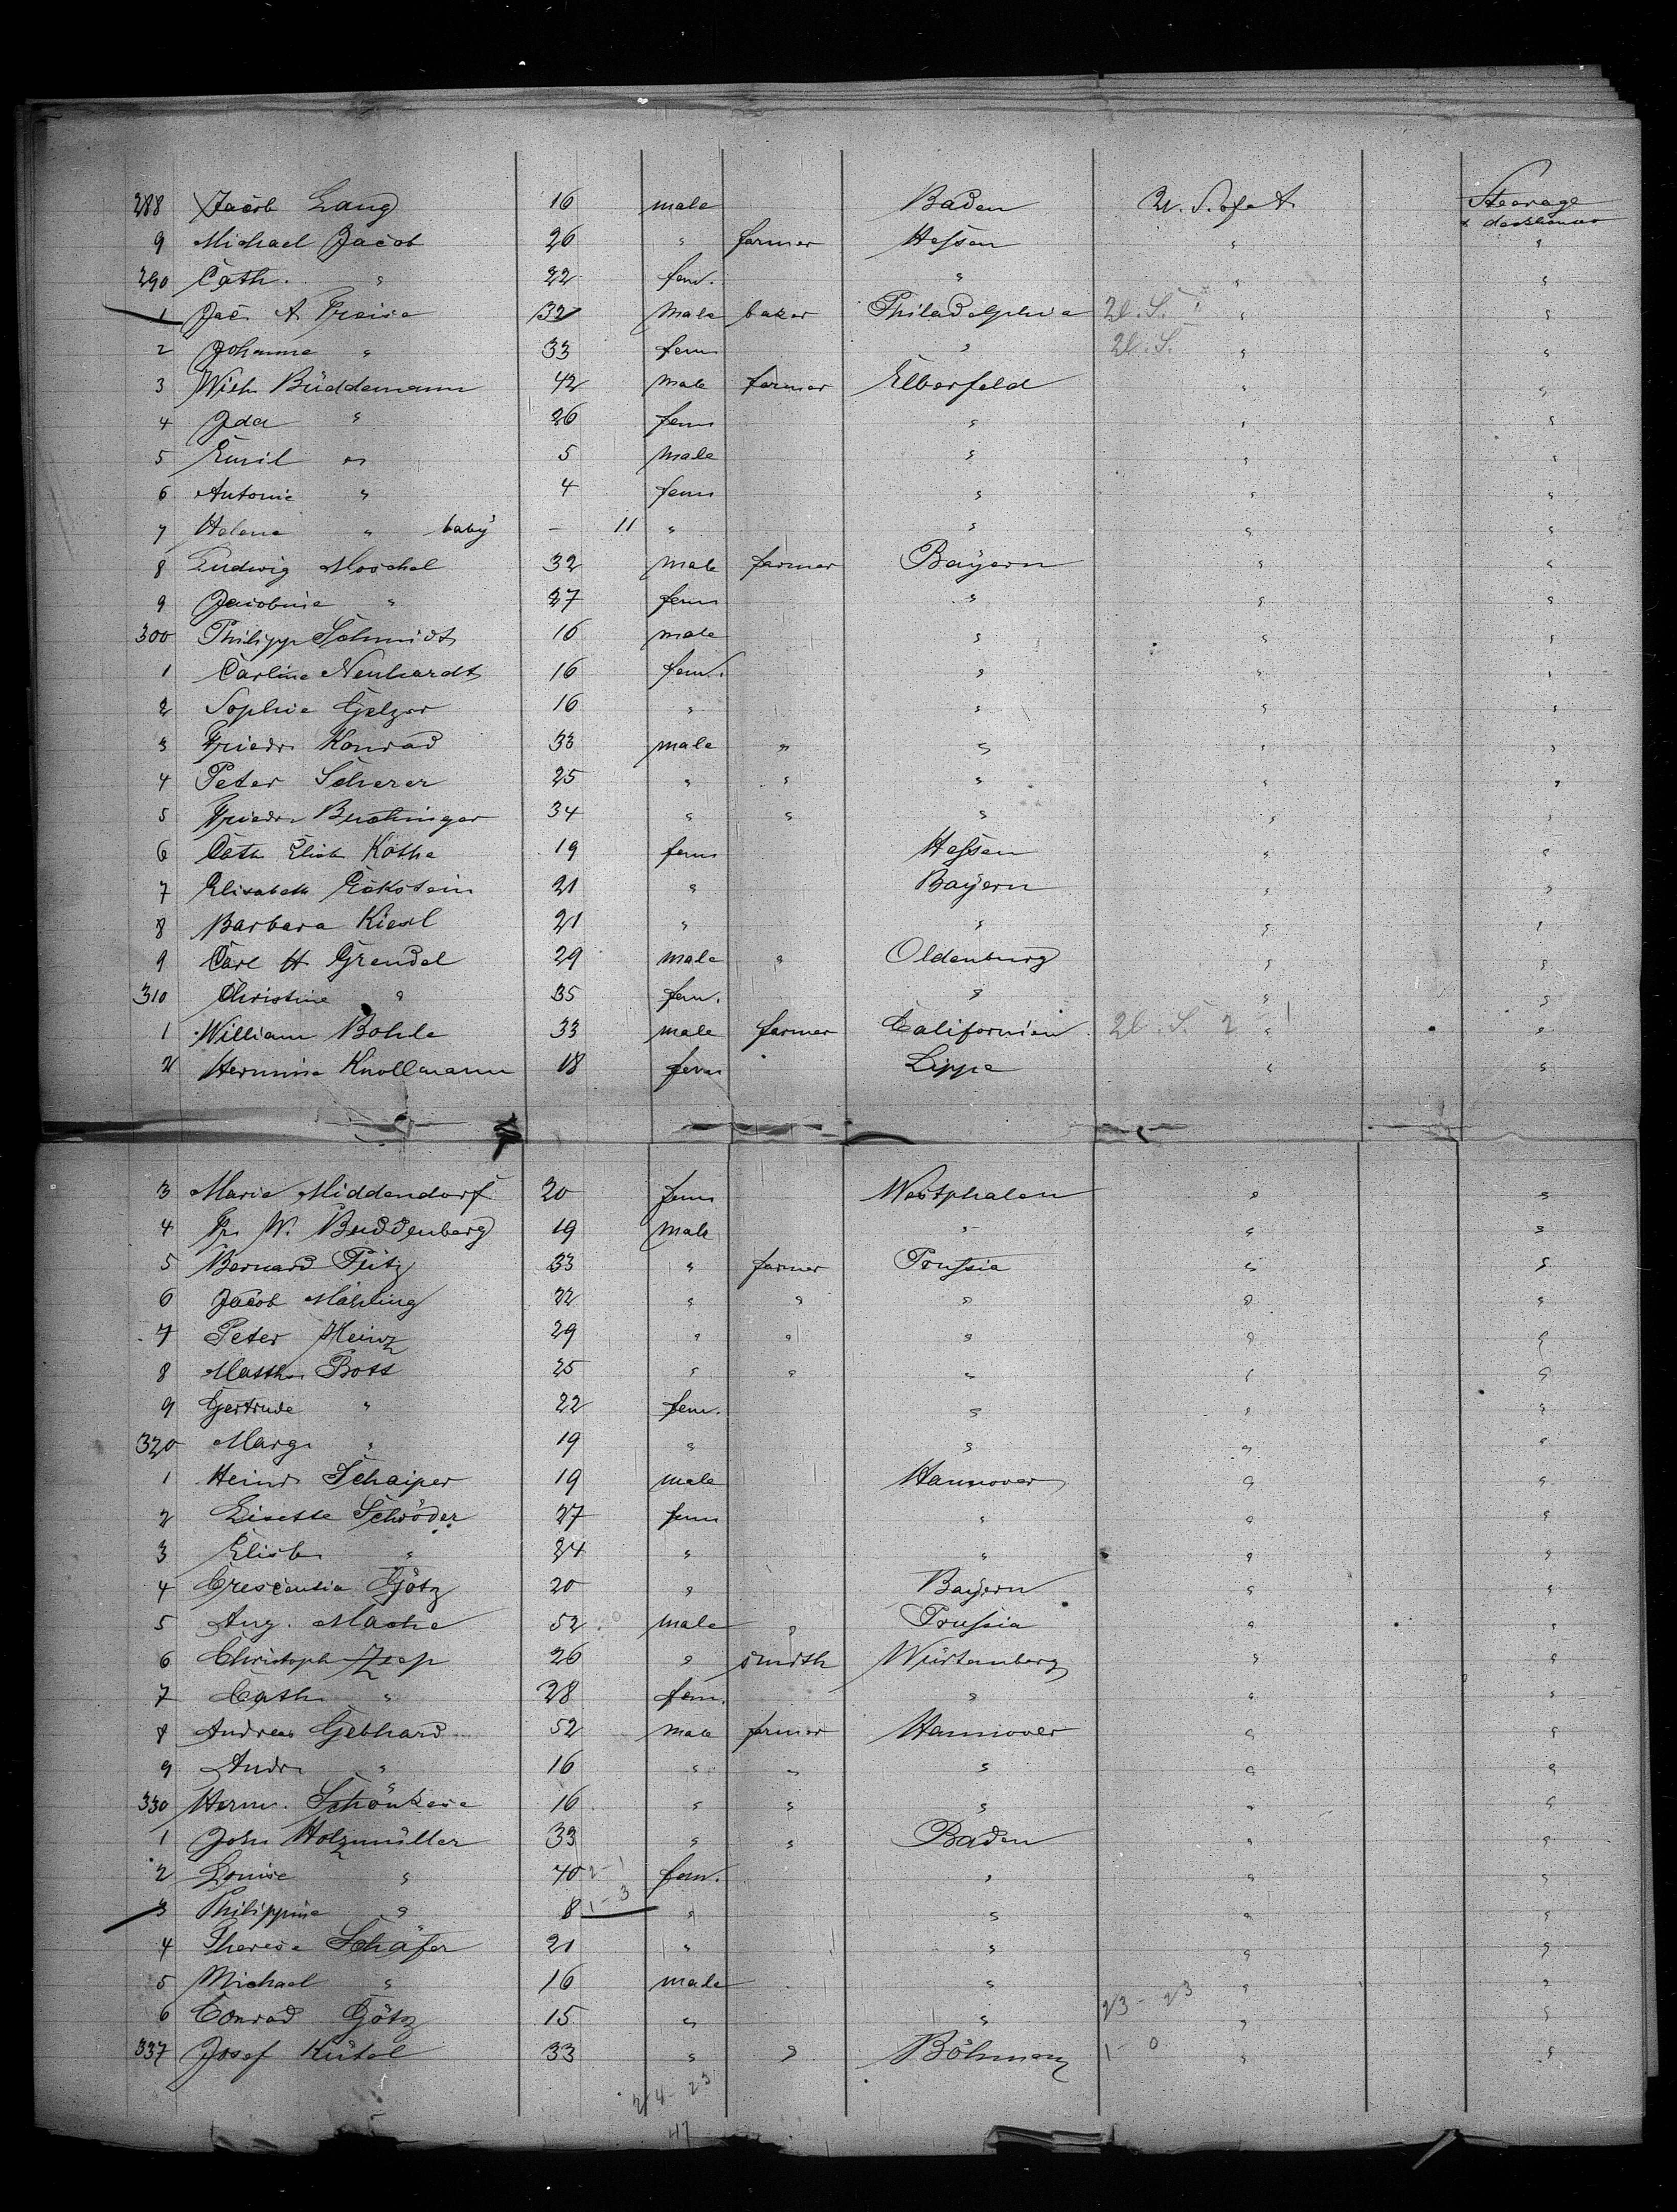 288 Jacob Lang 16 male Baden U. S. of A. Steerage
9 Michael Jacob 26 " farmer Hessen " "
290 Cath. " 22 fem. " " "
1 Jac. A. Freise 32 male baker Philadelphia U. S. " "
2 Johanna " 33 fem " U. S. " "
3 Wilh. Büddemann 42 male farmer Elberfeld " "
4 Ida " 26 fem " " "
5 Emil " 5 male " " "
6 Antonie " 4 fem " " "
7 Helene " baby – 11 " " " "
8 Ludwig Moschel 32 male farmer Bayern " "
9 Jacobine " 27 fem " " "
300 Philipp Schmidt 16 male " " "
1 Carline Neuhardt 16 fem. " " "
2 Sophie Gelzer 16 " " " "
3 Friedr. Konrad 33 male " " " "
4 Peter Scherer 25 " " " " "
5 Friedr. Buchinger 34 " " " " "
6 Cath Elisb Kothe 19 fem Hessen " "
7 Elisabeth Eckstein 21 " Bayern " "
8 Barbara Kiesl 21 " " " "
9 Carl H. Grendel 29 male " Oldenburg " "
310 Christine " 35 fem. " " "
1 William Bohle 33 male farmer Californien U. S. 2 " "
2 Hermine Knollmann 18 fem Lippe " "
3 Marie Middendorf 20 fem Westphalen " "
4 Fr. W. Buddenberg 19 male " " "
5 Bernard Pütz 33 " farmer Prussia " "
6 Jacob Mähling 22 " " " " "
7 Peter Heinz 29 " " " " "
8 Matth. Bott 25 " " " " "
9 Gertrude " 22 fem. " " "
320 Marg. " 19 " " " "
1 Heinr. Schaiper 19 male Hannover " "
2 Lisette Schröder 27 fem " " "
3 Elisb. " 24 " " " "
4 Crescentia Götz 20 " Bayern " "
5 Aug. Mache 52 male " Prussia " "
6 Christoph Zeap 26 " smith Würtemberg " "
7 Cath. " 28 fem. " " "
8 Andreas Gebhard 52 male farmer Hannover " "
9 Andr. " 16 " " " " "
330 Herm. Schönkese 16 " " " " "
1 John Holzmüller 33 " " Baden " "
2 Louise " 40 2-1 fem. " " "
3 Philippine " 8 1-3 " " " "
4 Therese Schäfer 21 " " " "
5 Michael " 16 male " " "
6 Conrad Götz 15 " " 23-23 " "
337 Josef Kütel 33 " " Böhmen 1-0 " "
24-23
47